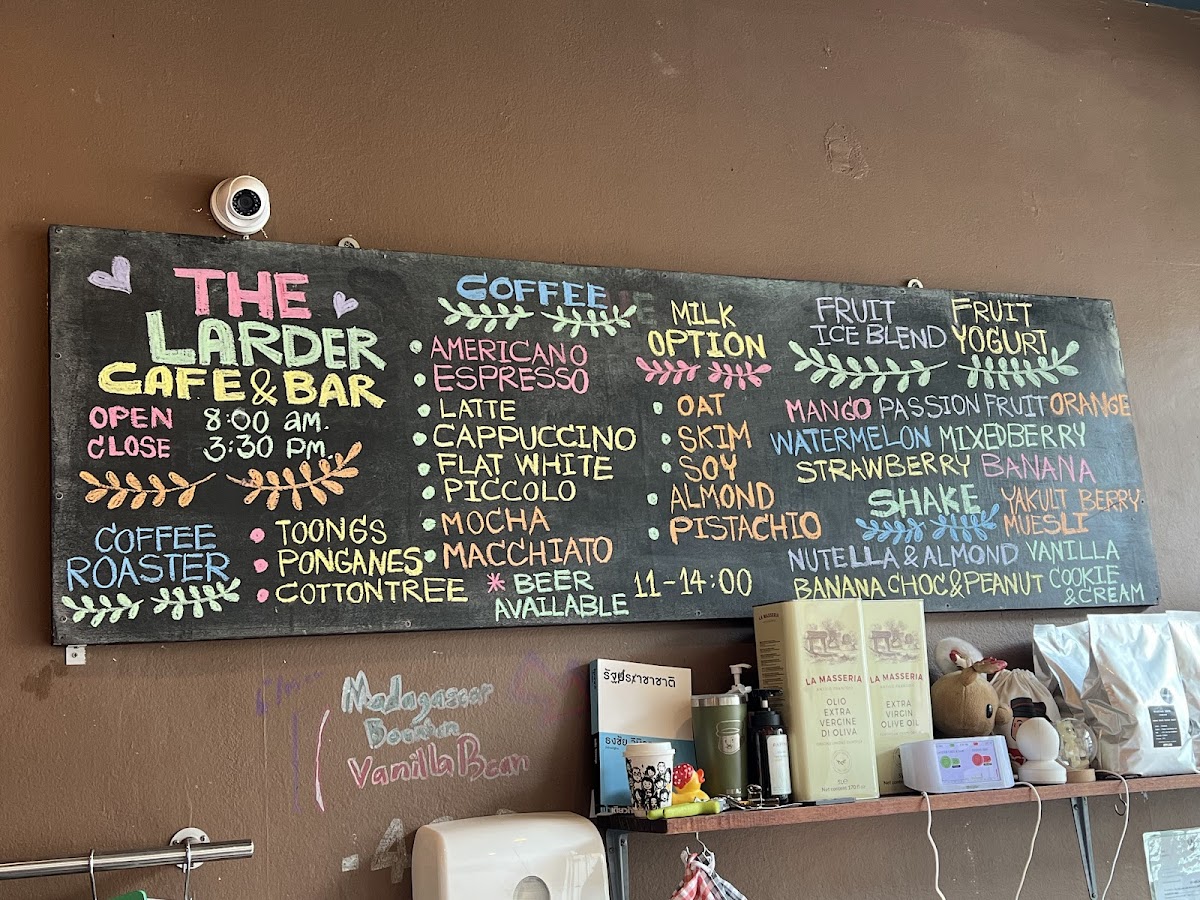 THE
LARDER
CAFE & BAR
OPEN 8:00 am.
CLOSE 3:30 pm.
COFFEE
ROASTER
TOONGS
PONGANES
COTTONTREE
COFFEE
AMERICANO
ESPRESSO
LATTE
CAPPUCCINO
FLAT WHITE
PICCOLO
MOCHA
MACCHIATO
* BEER
AVAILABLE
11-14:00
MILK
OPTION
OAT
SKIM
SOY
ALMOND
PISTACHIO
FRUIT
ICE BLEND
FRUIT
YOGURT
MANGO PASSION FRUIT ORANGE
WATERMELON MIXEDBERRY
STRAWBERRY BANANA
SHAKE
YAKULT BERRY
MUESLI
NUTELLA & ALMOND VANILLA
BANANA CHOC & PEANUT COOKIE
& CREAM
Madagascar
Bourbon
Vanilla Bean
รัฐประชาชาติ
ธงชัย
LA MASSERIA
OLIO
EXTRA
VERGINE
DI OLIVA
LA MASSERIA
EXTRA
VIRGIN
OLIVE OIL